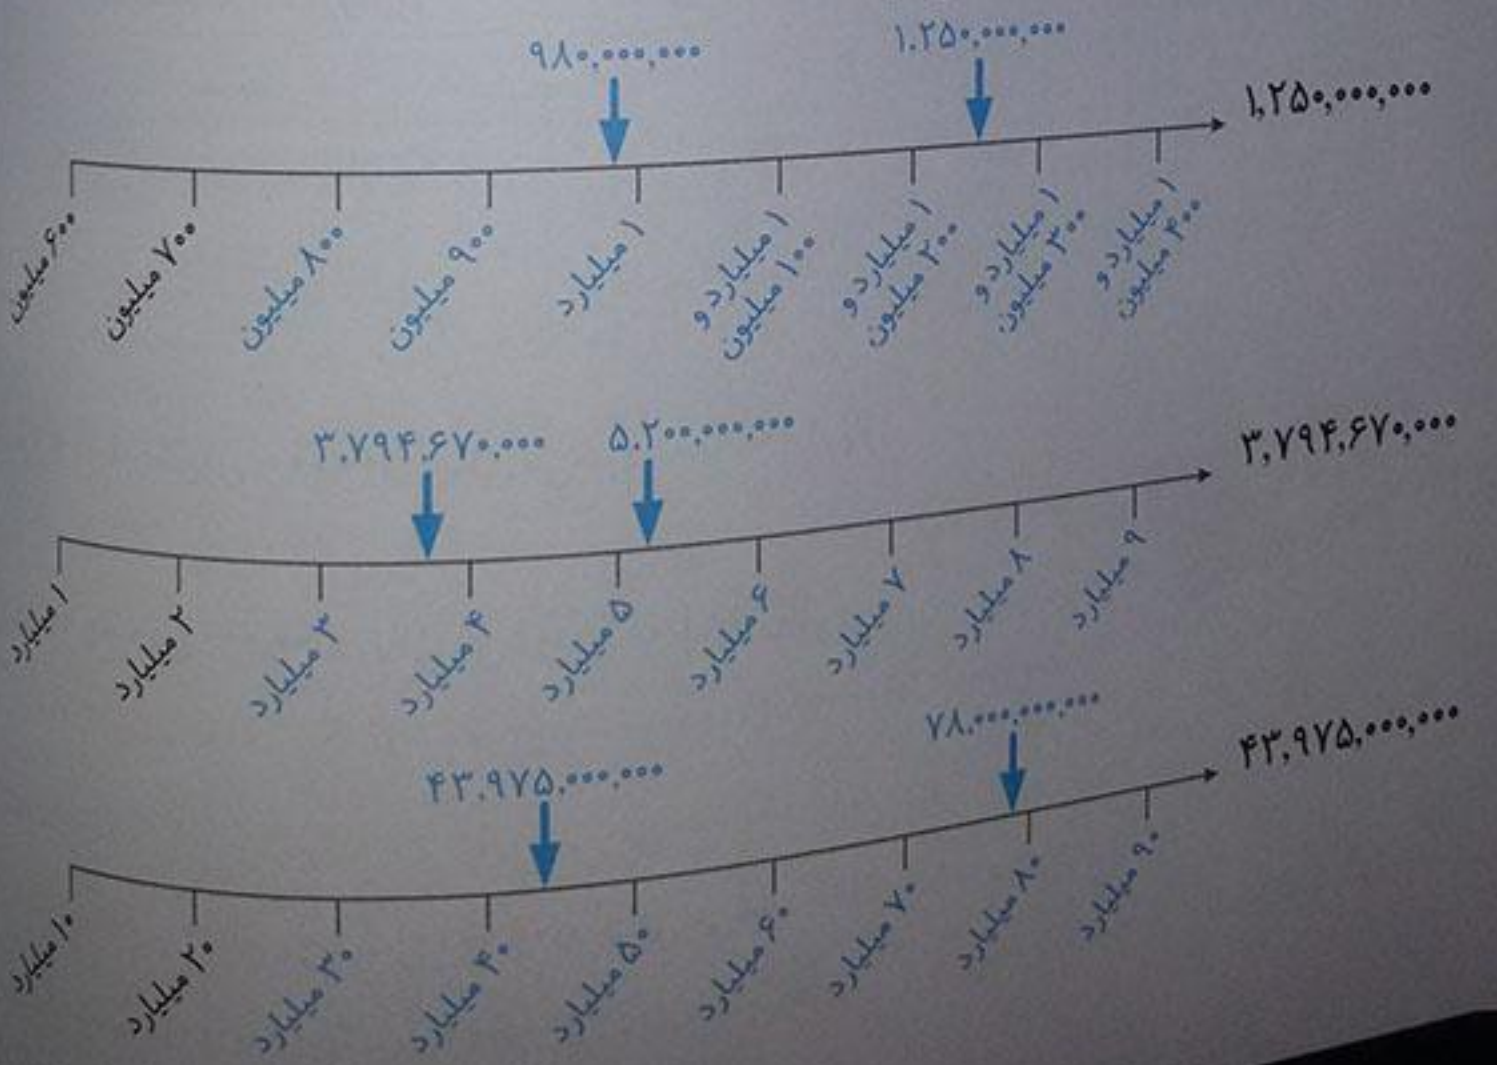 ۹۸۰,۰۰۰,۰۰۰
۱.۲۵۰,۰۰۰,۰۰۰
۱,۲۵۰,۰۰۰,۰۰۰
۶۰۰ میلیون
۷۰۰ میلیون
۸۰۰ میلیون
۹۰۰ میلیون
۱ میلیارد
۱ میلیارد و
۱۰۰ میلیون
۱ میلیارد و
۲۰۰ میلیون
۱ میلیارد و
۳۰۰ میلیون
۱ میلیارد و
۴۰۰ میلیون
۳.۷۹۴.۶۷۰.۰۰۰
۵.۲۰۰,۰۰۰,۰۰۰
۳,۷۹۴,۶۷۰,۰۰۰
۱ میلیارد
۲ میلیارد
۳ میلیارد
۴ میلیارد
۵ میلیارد
۶ میلیارد
۷ میلیارد
۸ میلیارد
۹ میلیارد
۴۳.۹۷۵,۰۰۰,۰۰۰
۷۸,۰۰۰,۰۰۰,۰۰۰
۴۳,۹۷۵,۰۰۰,۰۰۰
۱۰ میلیارد
۲۰ میلیارد
۳۰ میلیارد
۴۰ میلیارد
۵۰ میلیارد
۶۰ میلیارد
۷۰ میلیارد
۸۰ میلیارد
۹۰ میلیارد